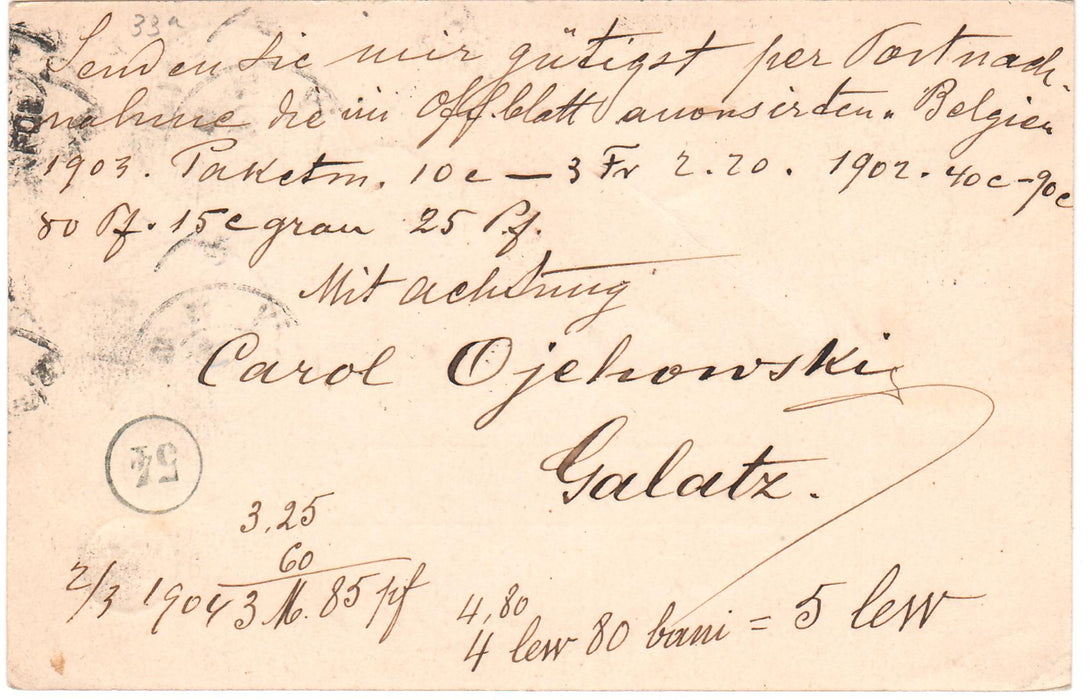 33a
Senden Sie mir gütigst per Postnach-
nahme die im Offblatt anonsirten. Belgien
1903. Paketm. 10c — 3 Fr 2.20. 1902. 40c - 90c
80 Pf. 15c grau 25 Pf.
Mit Achtung
Carol Ojehowski
Galatz.
54
3.25
60
2/3 1904 3 M. 85 pf
4,80
4 lew 80 bani = 5 lew